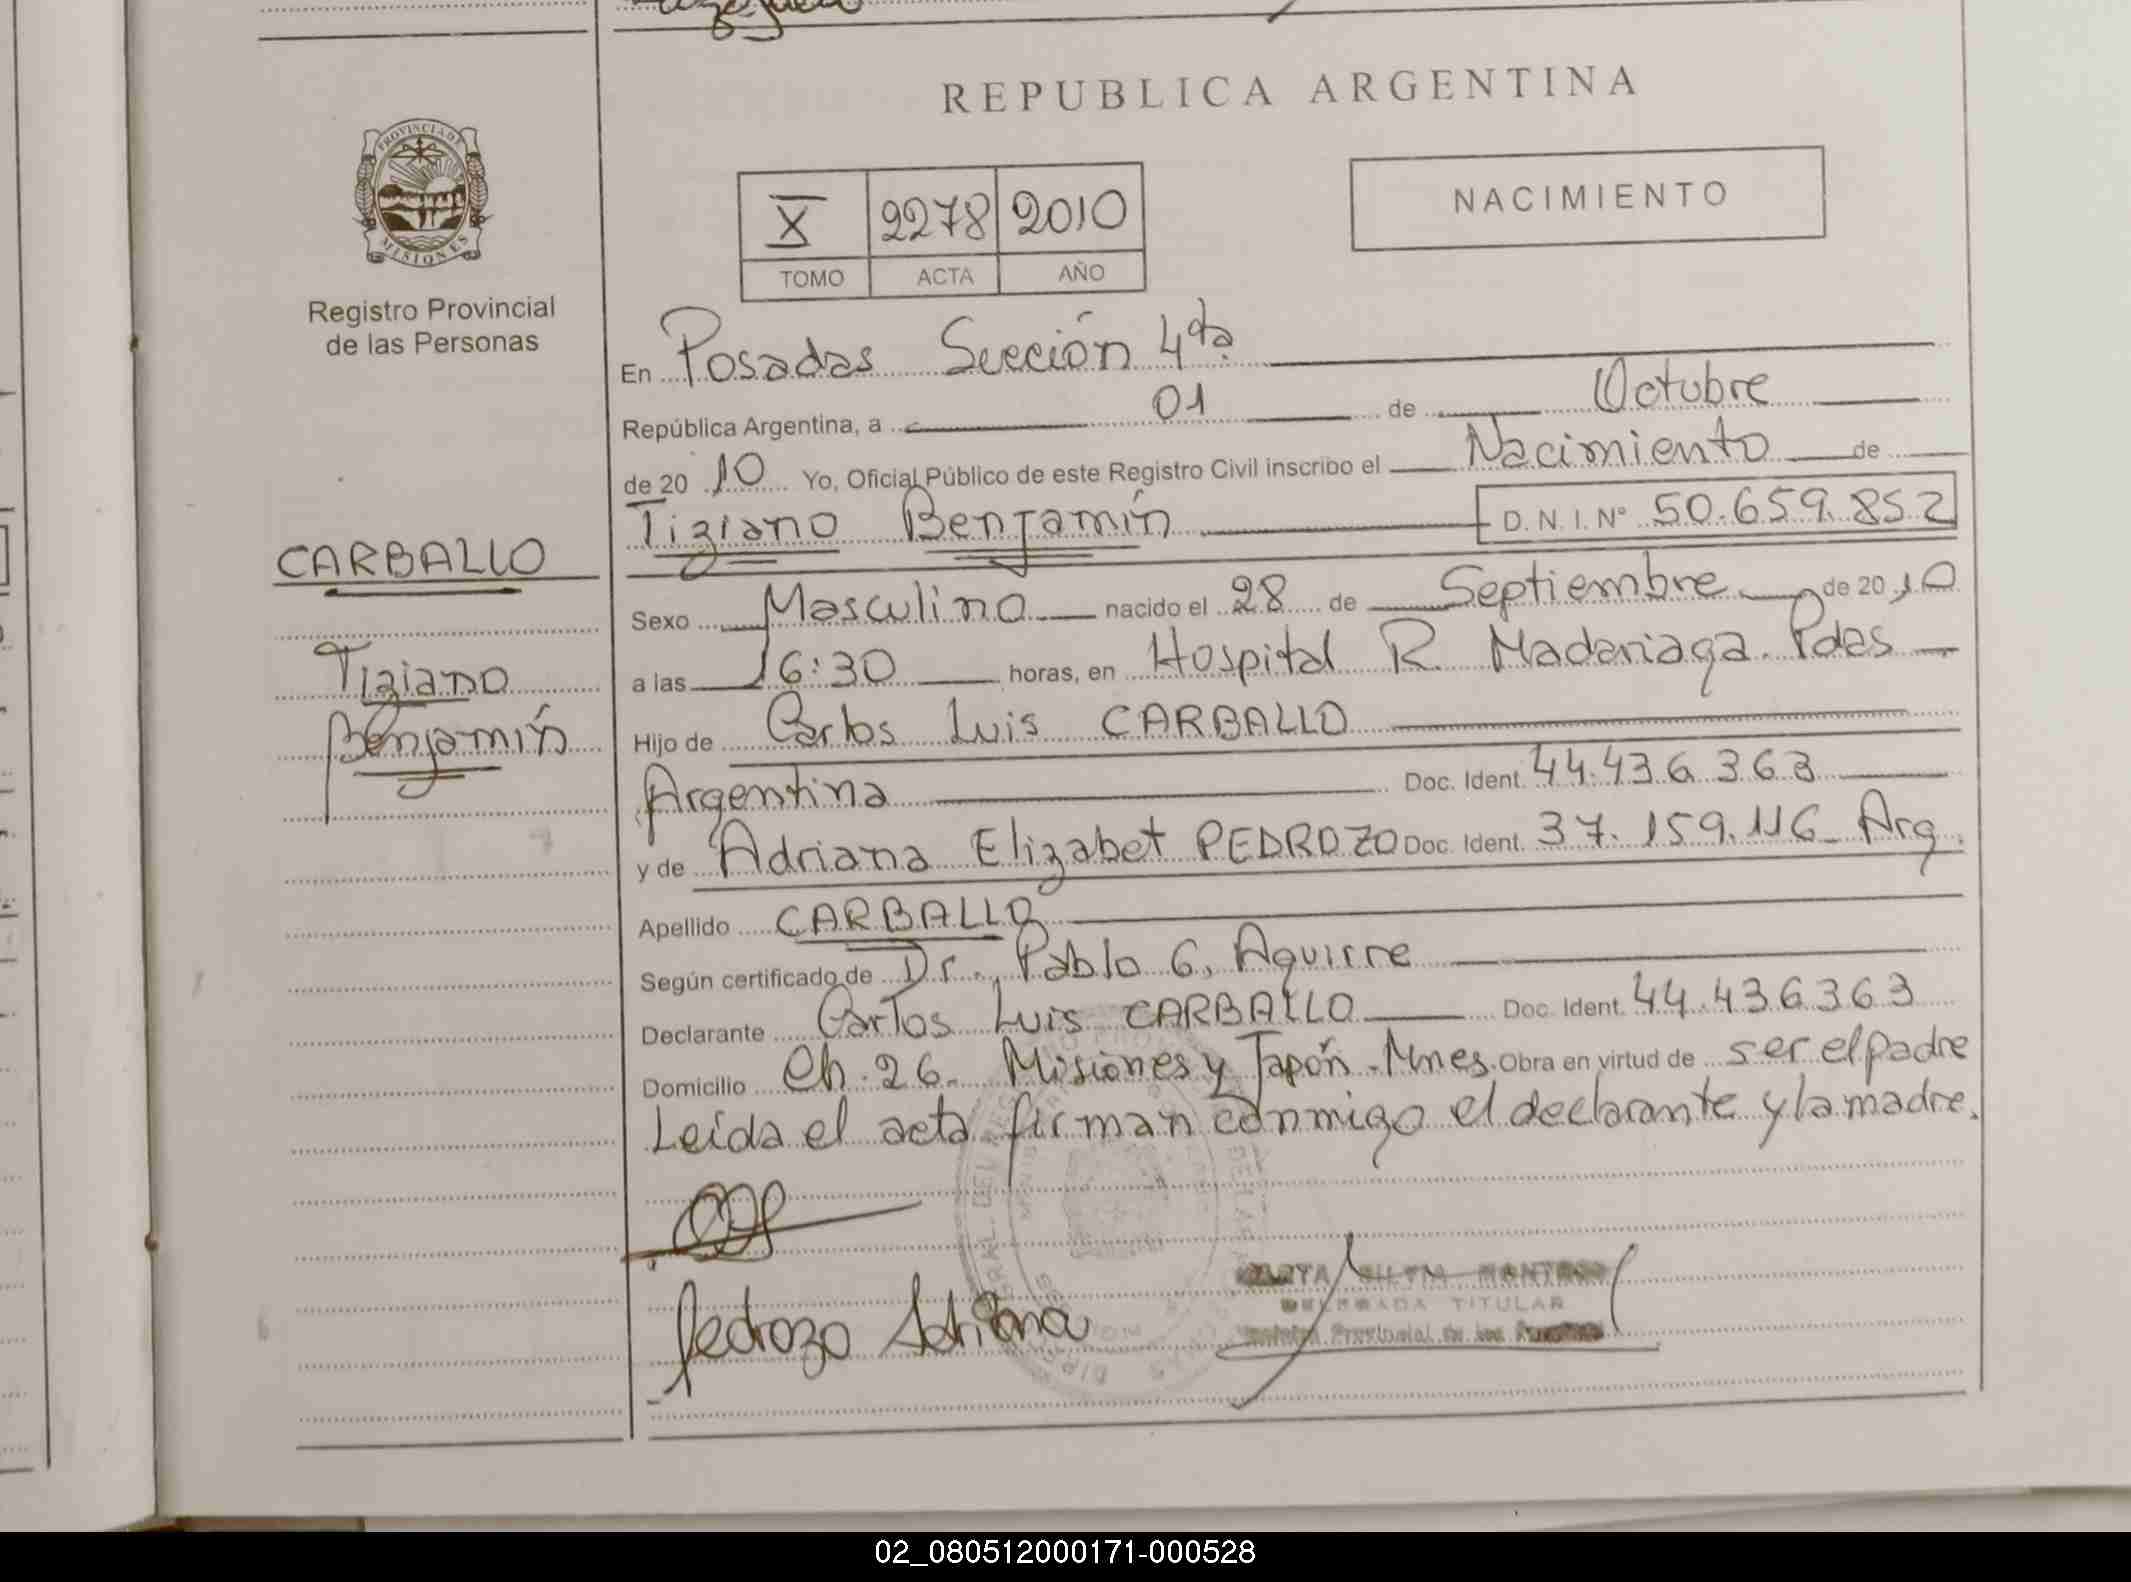 REPUBLICA ARGENTINA
PROVINCIA DE
MISIONES
Registro Provincial
de las Personas
X 2278 2010
TOMO ACTA AÑO
NACIMIENTO
En Posadas Sección 4ta
República Argentina, a 01 de Octubre
de 20 10 Yo, Oficial Público de este Registro Civil inscribo el Nacimiento de
Tiziano Benjamín D.N.I. Nº 50.659.852
CARBALLO
Tiziano
Benjamín
Sexo Masculino nacido el 28 de Septiembre de 2010
a las 16:30 horas, en Hospital R. Madariaga. Pdas
Hijo de Carlos Luis CARBALLO
Argentina Doc. Ident. 44.436.363
y de Adriana Elizabet PEDROZO Doc. Ident. 37.159.116 Arg.
Apellido CARBALLO
Según certificado de Dr. Pablo G. Aguirre
Declarante Carlos Luis CARBALLO Doc. Ident. 44.436363
Domicilio Ch. 26. Misiones y Japón. Mnes. Obra en virtud de ser el padre
Leída el acta firman conmigo el declarante y la madre.
Pedrozo Adriana
TITULAR
Provincial de las
02_080512000171-000528